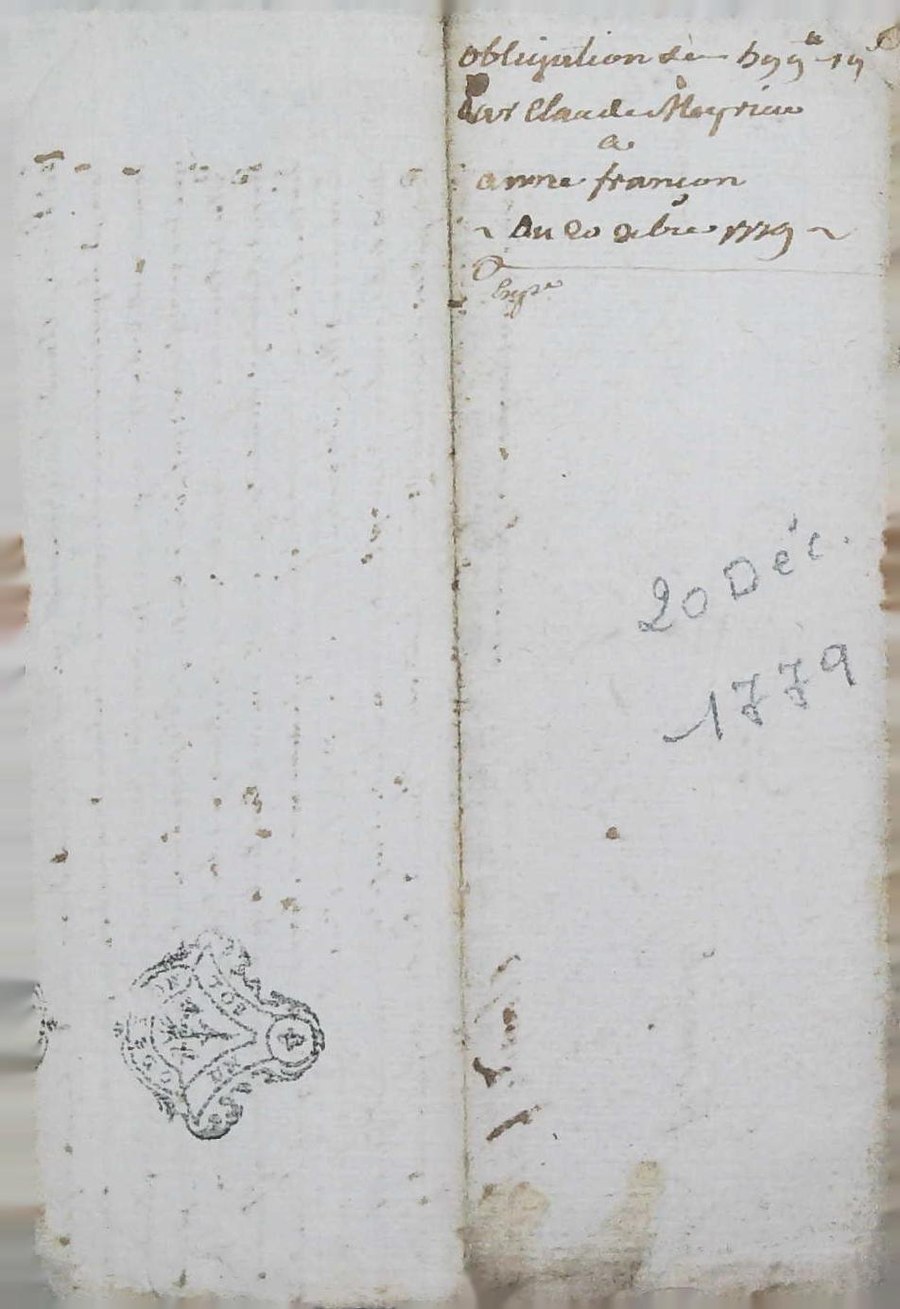 obligation de 599ᵗᵗ 19ˢ
par Claude Meyrieu
a
anne françon
~ Du 20 xbre 1779 ~
Exp.ᵉ
20 Déc.
1779